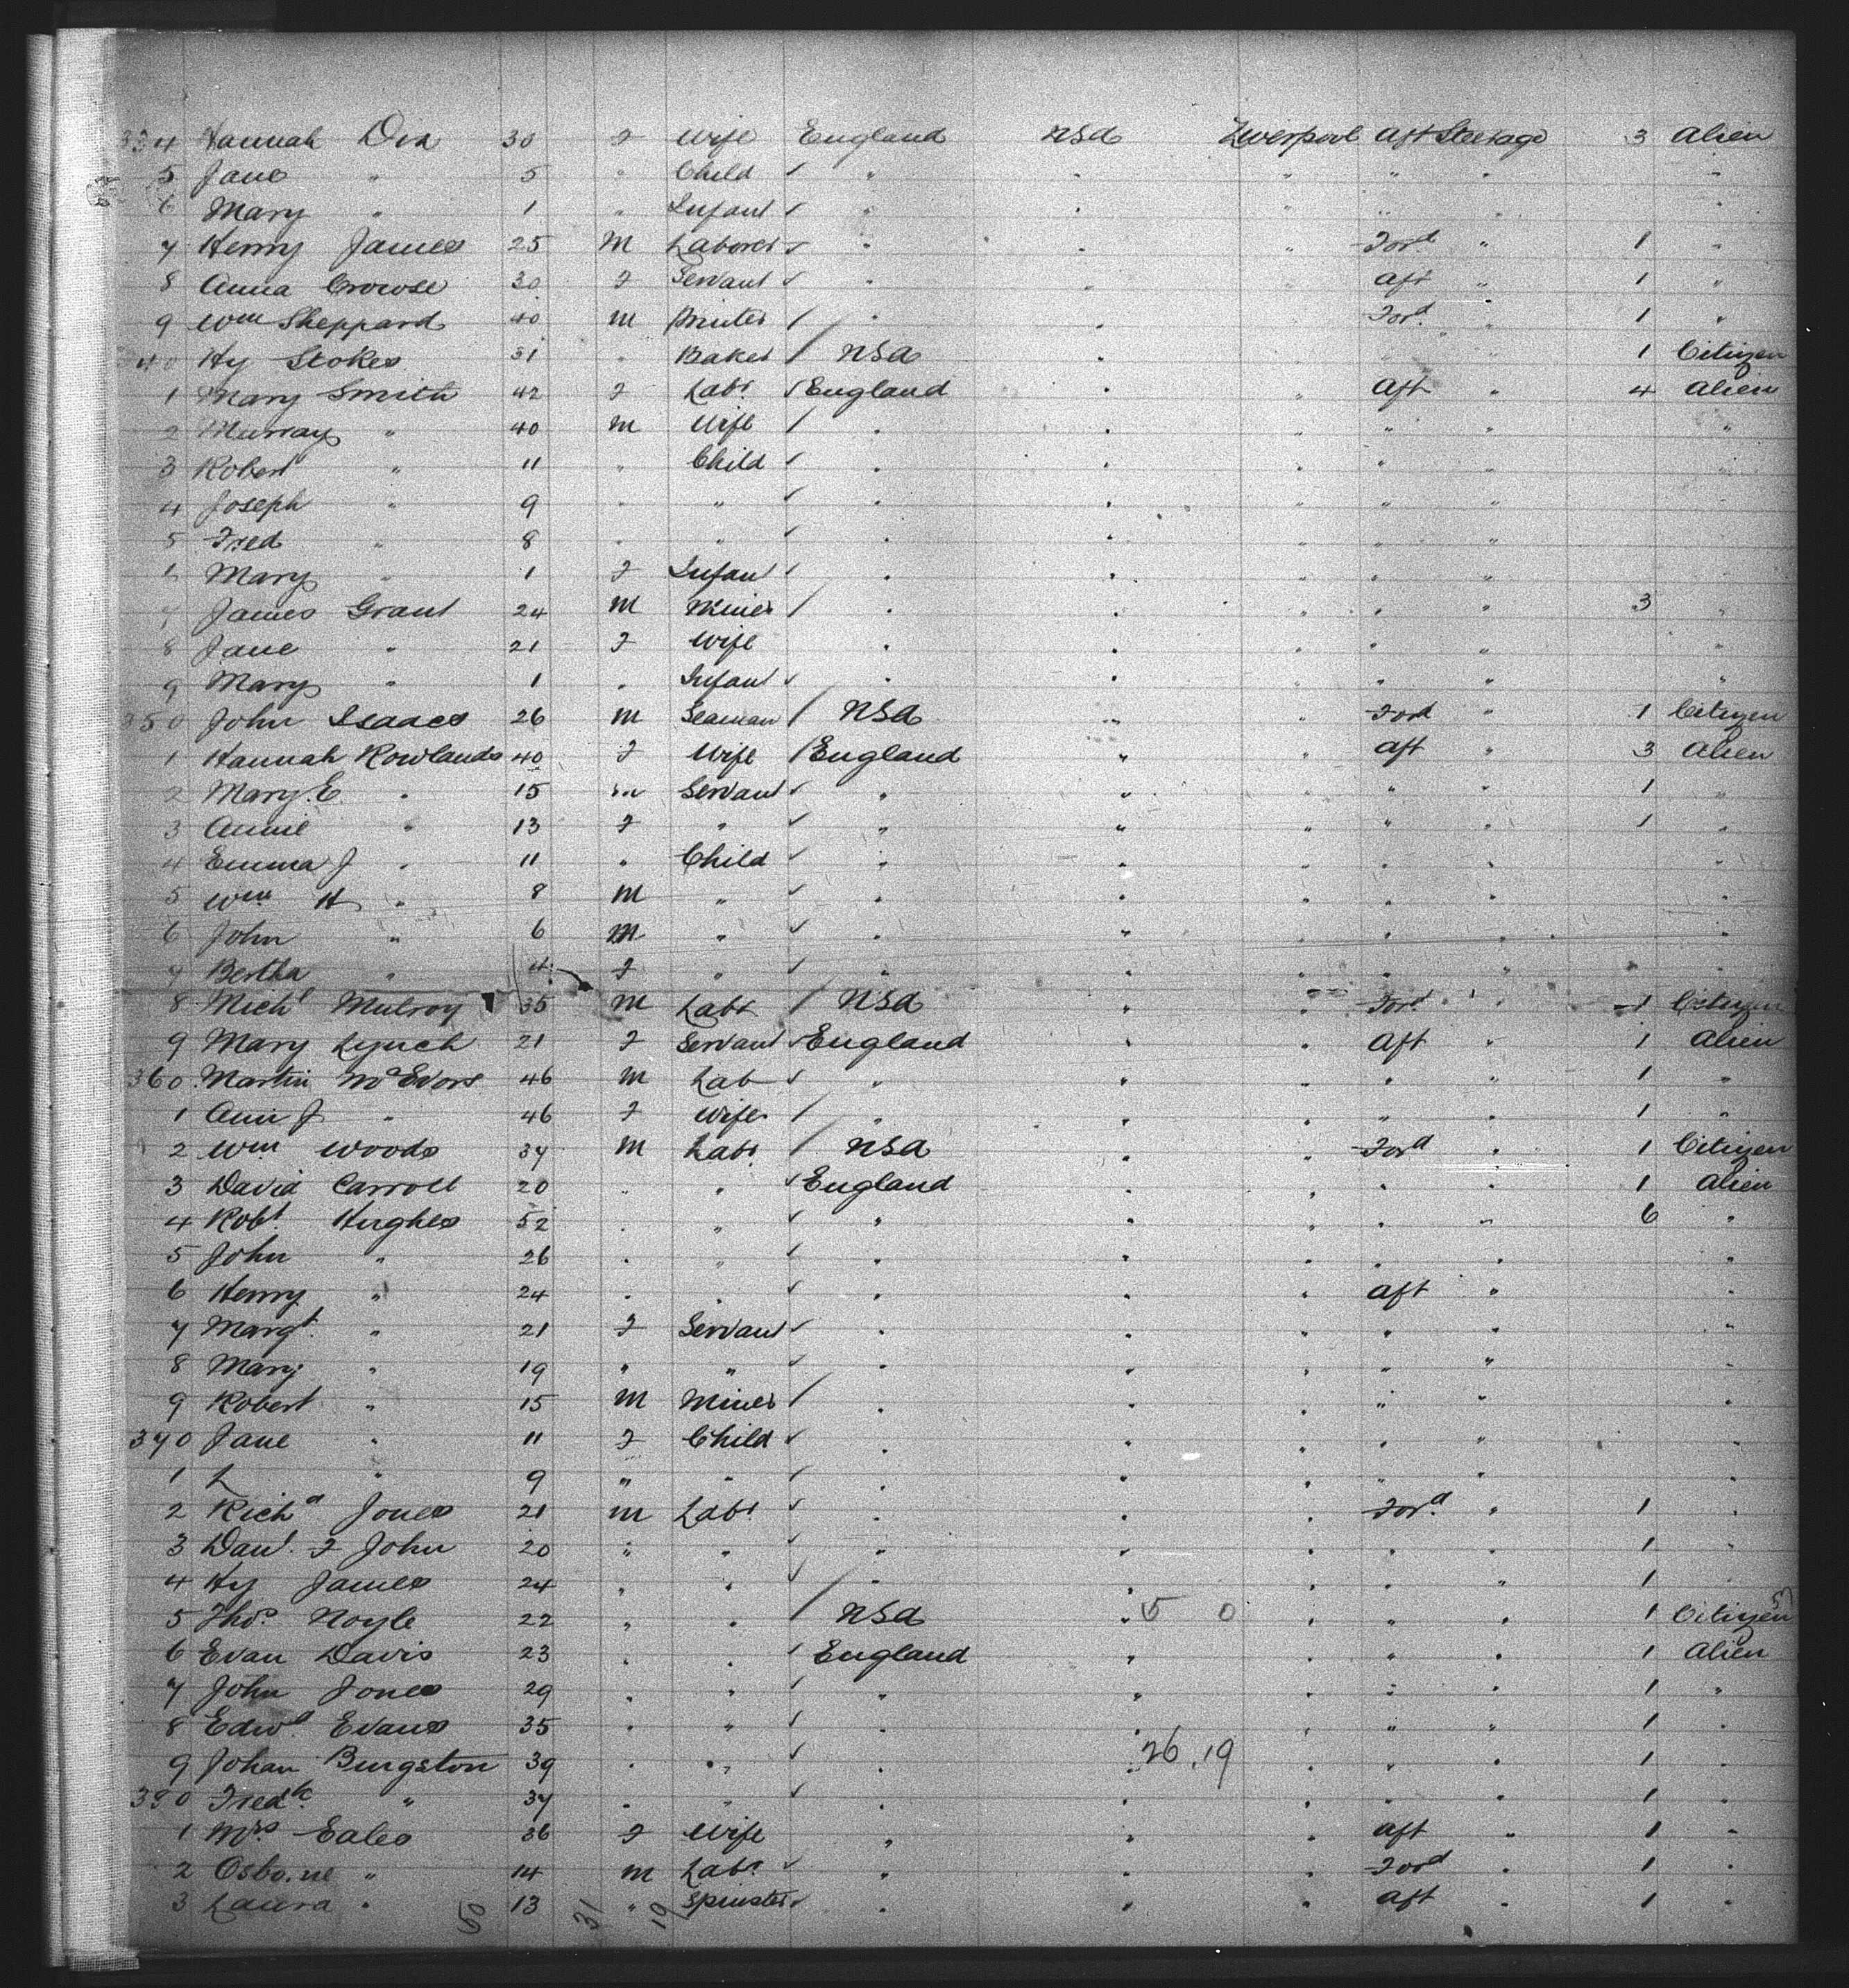 334 Hannah Dix 30 F Wife England USA Liverpool Aft Steerage 3 Alien
5 Jane " 5 " Child ✓ " " " " " "
6 Mary " 1 " Infant ✓ " " " " " "
7 Henry James 25 M Laborer ✓ " " " Ford " 1 "
8 Anna Crowse 30 F Servant ✓ " " " Aft " 1 "
9 Wm Sheppard 40 M Printer / " " Ford " 1 "
340 Hy Stokes 31 " Baker / USA " " " 1 Citizen
1 Mary Smith 42 F Labr ✓ England " " Aft " 4 Alien
2 Murray " 40 M Wife / " " " " " "
3 Robert " 11 " Child ✓ " " " " "
4 Joseph " 9 " " ✓ " " " " " "
5 Fred " 8 " " ✓ " " " " " "
6 Mary " 1 F Infant ✓ " " " " " "
7 James Grant 24 M Miner / " " " " " 3 "
8 Jane " 21 F Wife " " " " " "
9 Mary " 1 " Infant ✓ " " " " " "
350 John Isaacs 26 M Seaman / USA " " Ford " 1 Citizen
1 Hannah Rowlands 40 F Wife / England " " Aft " 3 Alien
2 Mary E. " 15 m Servant ✓ " " " " " 1 "
3 Annie " 13 F " ✓ " " " " " 1 "
4 Emma J " 11 " Child ✓ " " " " " "
5 Wm H " 8 M " ✓ " " " " " "
6 John " 6 M " ✓ " " " " " "
7 Bertha " 4 F " ✓ " " " " " "
8 Michl Mulroy 35 M Labr / USA " " Ford " 1 Citizen
9 Mary Lynch 21 F Servant ✓ England " " Aft " 1 Alien
360 Martin McEvors 46 M Lab ✓ " " " " " 1 "
1 Ann J " 46 F Wife / " " " " " 1 "
2 Wm Woods 37 M Labr / USA " " Ford " 1 Citizen
3 David Carroll 20 " " ✓ England " " " " 1 Alien
4 Robt Hughes 52 " " ✓ " " " " " 6 "
5 John " 26 " " ✓ " " " " " "
6 Henry " 24 " " ✓ " " " Aft " "
7 Margt. " 21 F Servant ✓ " " " " " "
8 Mary " 19 " " ✓ " " " " " "
9 Robert " 15 M Miner / " " " " " "
370 Jane " 11 F Child ✓ " " " " " "
1 L " 9 " " ✓ " " " " " "
2 Richd Jones 21 M Labr ✓ " " " Ford " 1 "
3 Danl. F John 20 " " ✓ " " " " " 1 "
4 Hy James 24 " " ✓ " " " " " 1 "
5 Thos Noyle 22 " " / USA " 5 0 " " " 1 Citizen
6 Evan Davis 23 " " / England " " " " 1 Alien
7 John Jones 29 " " ✓ " " " " " 1 "
8 Edwd Evans 35 " " ✓ " " " " " 1 "
9 Johan Bingston 39 " " ✓ " " 26.19 " " " 1 "
380 Fredk " 37 " " ✓ " " " " " 1 "
1 Mrs Eales 36 F Wife " " " Aft " 1 "
2 Osborne " 14 M Labr ✓ " " " Ford " 1 "
3 Laura " 13 " Spinster ✓ " " " Aft " 1 "
50 31 19